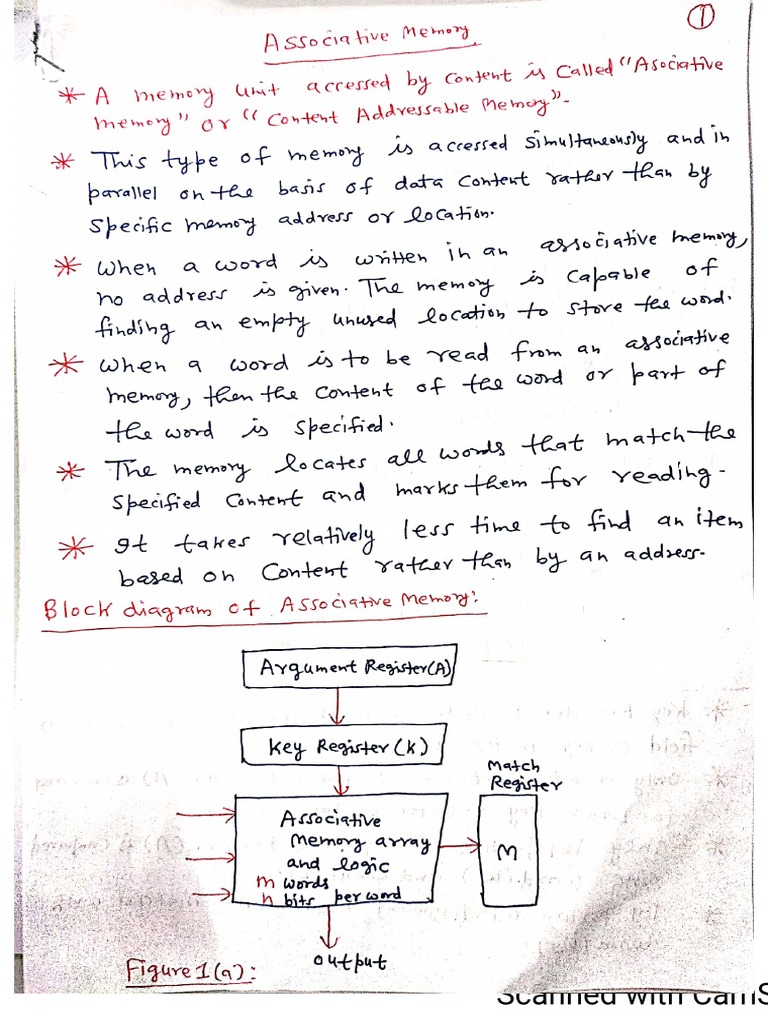 ①
Associative Memory
* A memory unit accressed by content is called "Asociative
memory" or "Content Addressable Memory".
* This type of memory is accessed simultaneously and in
parallel on the basis of data content rather than by
specific memory address or location.
* When a word is written in an associative memory,
no address is given. The memory is capable of
finding an empty unused location to store the word.
* When a word is to be read from an associative
memory, then the content of the word or part of
the word is specified.
* The memory locates all words that match the
specified content and marks them for reading.
* It takes relatively less time to find an item
based on content rather than by an address.
Block diagram of Associative Memory:
Argument Register(A)
Key Register (K)
Match
Register
Associative
memory array
and logic
m words
n bits per word
M
output
Figure 1(a):
Scanned with CamS